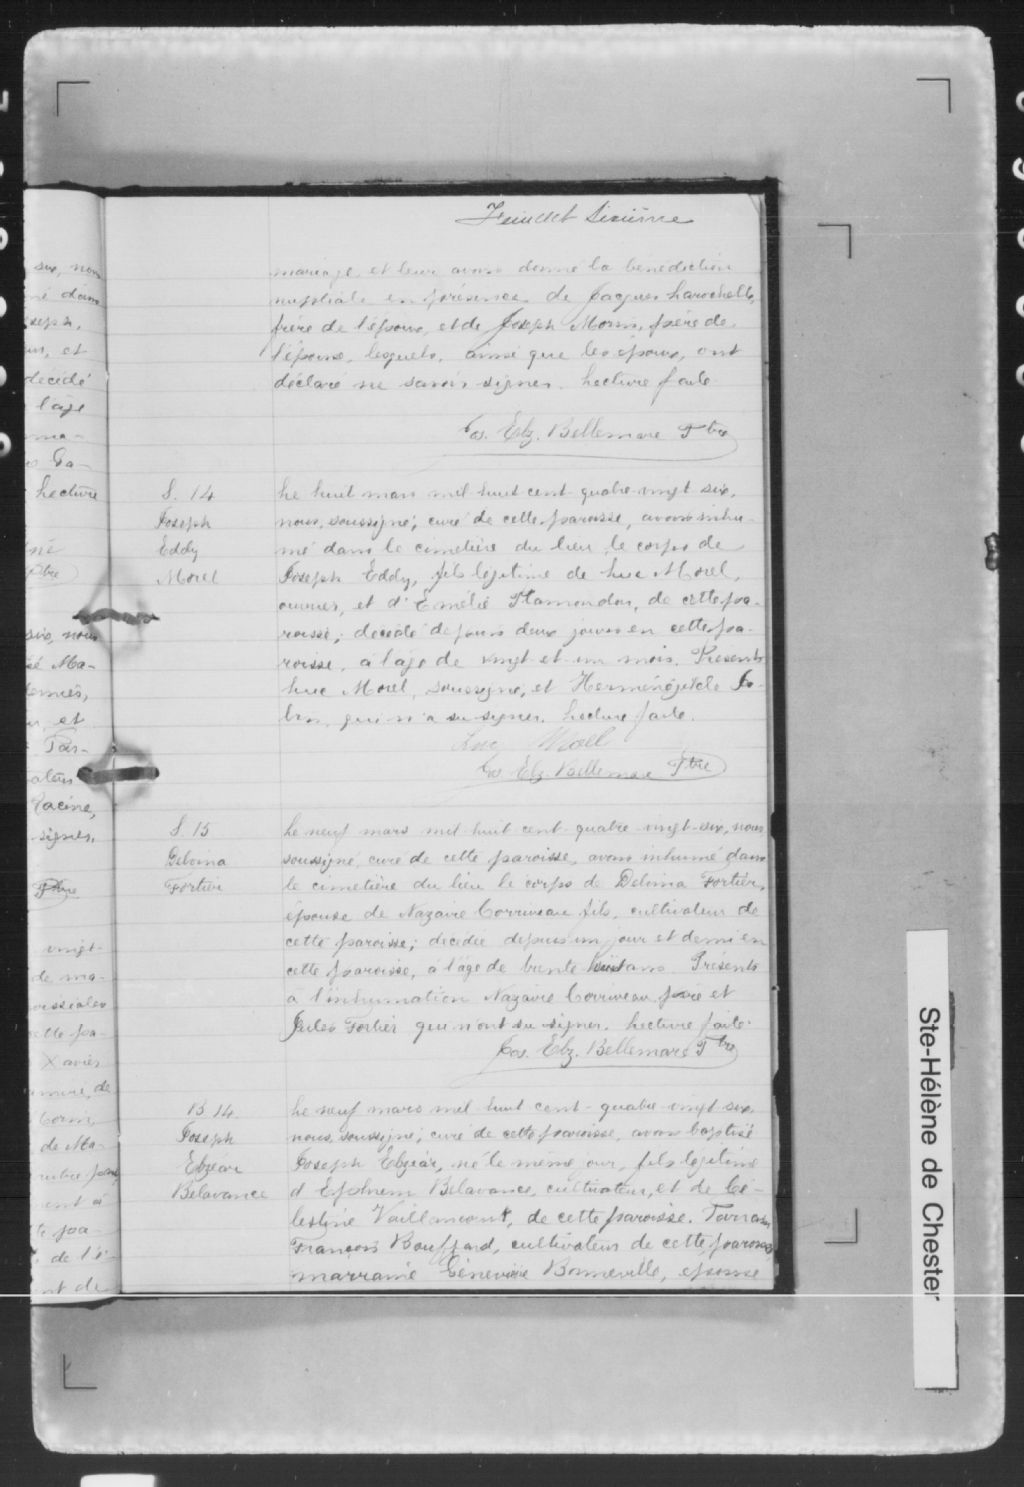 Feuillet Sixième
mariage, et leur avons donné la bénédiction
nuptiale en présence de Jacques Larochelle,
frère de l'époux, et de Joseph Morin, frère de
l'épouse, lesquels, ainsi que les époux, ont
déclaré ne savoir signer. Lecture faite.
Jos. Elz. Bellemare Ptre
S. 14
Joseph
Eddy
Morel
Le huit mars mil huit cent quatre-vingt six,
nous, soussigné, curé de cette paroisse, avons inhu-
mé dans le cimetière du lieu le corps de
Joseph Eddy, fils légitime de Luc Morel,
ouvrier, et d'Emélie Plamondon, de cette pa-
roisse; décédé depuis deux jours en cette pa-
roisse, à l'âge de vingt-et-un mois. Présents
Luc Morel, soussigné, et Herménégilde
qui n'a su signer. Lecture faite.
Luc Morel
Jos. Elz. Bellemare Ptre
S. 15
Delvina
Fortier
Le neuf mars mil huit cent quatre-vingt-six, nous
soussigné, curé de cette paroisse, avons inhumé dans
le cimetière du lieu le corps de Delvina Fortier,
épouse de Nazaire Corriveau fils, cultivateur de
cette paroisse; décédée depuis un jour et demi en
cette paroisse, à l'âge de trente huit ans. Présents
à l'inhumation Nazaire Corriveau père et
Jules Fortier qui n'ont su signer. Lecture faite.
Jos. Elz. Bellemare Ptre
B 14
Joseph
Elzéar
Belavance
Le neuf mars mil huit cent quatre-vingt-six,
nous, soussigné, curé de cette paroisse, avons baptisé
Joseph Elzéar, né le même jour, fils légitime
d'Ephrem Belavance, cultivateur, et de Cé-
lestine Vaillancourt, de cette paroisse. Parrain
François Bouffard, cultivateur de cette paroisse
marraine Géneviève Bonneville, épouse
six, nous
dans
et
décédé
l'âge
Lecture
Ptre
six, nous
Ma-
et
Racine,
signer.
Ptre
vingt-
de ma-
Xavier
de
de Ma-
de l'é-
Ste-Hélène de Chester